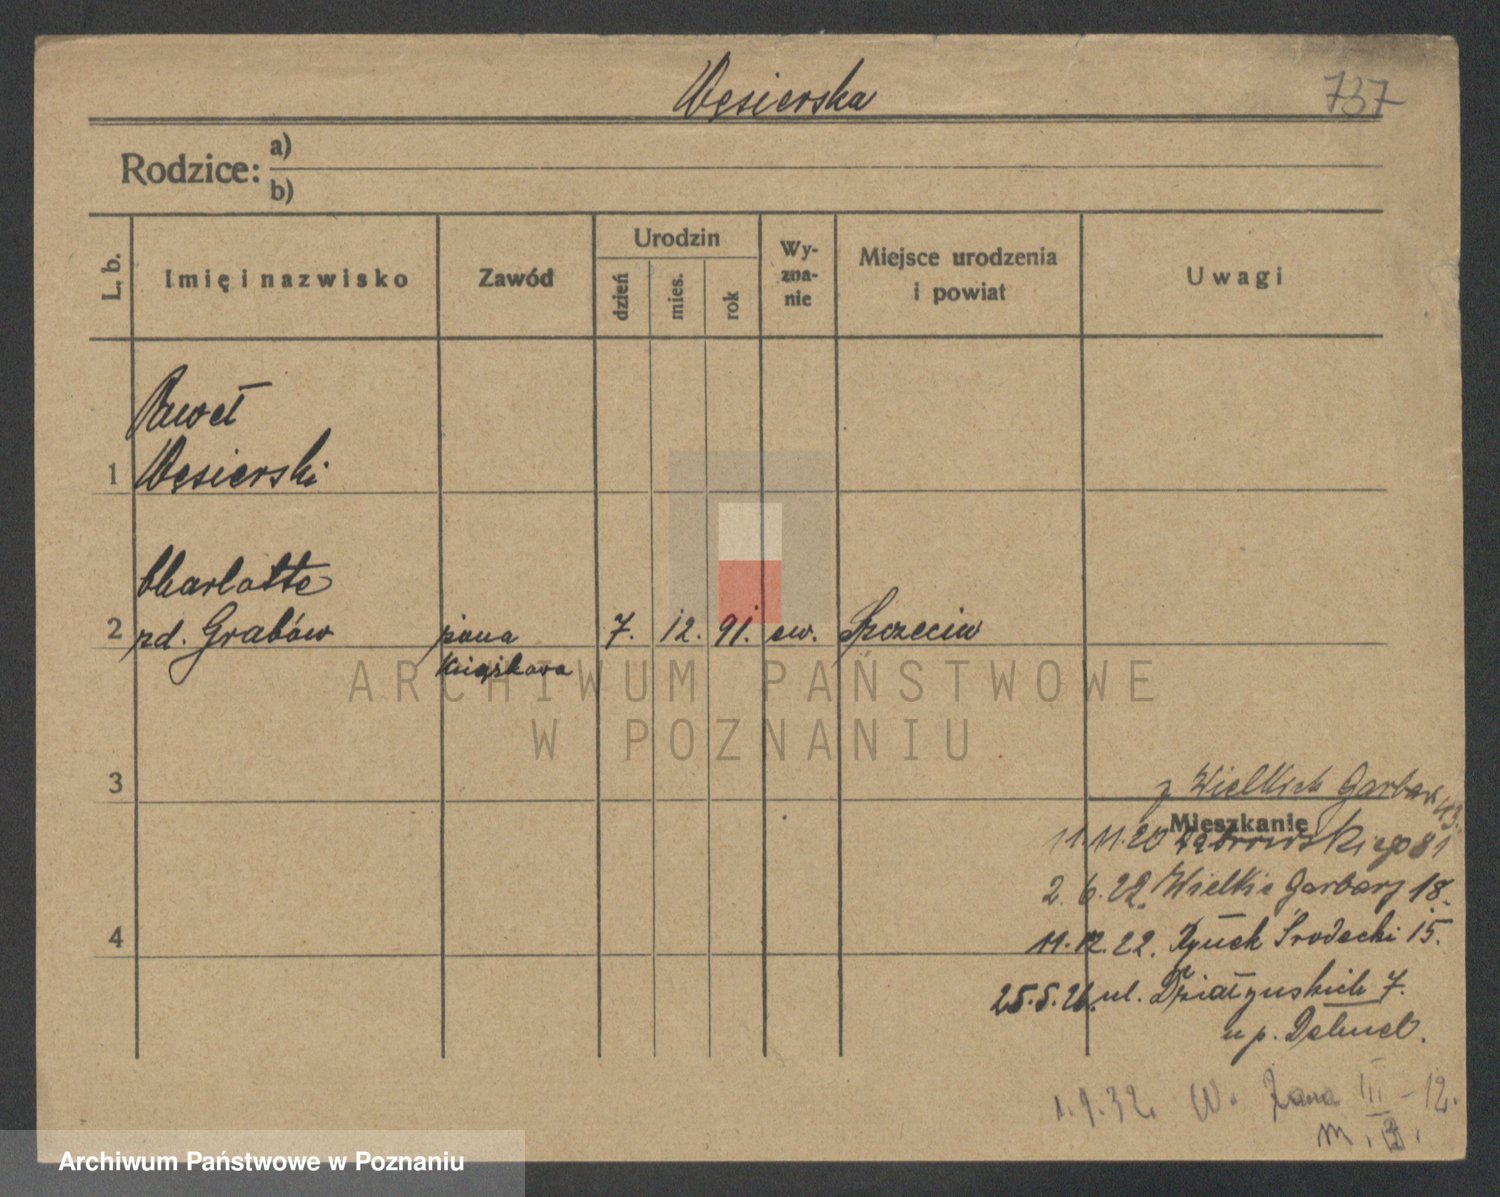 Węsierska
737
Rodzice: a)
b)
L. b.
Imię i nazwisko
Zawód
Urodzin
dzień
mies.
rok
Wy-
zna-
nie
Miejsce urodzenia
i powiat
Uwagi
Paweł
1 Węsierski
Charlotte
2 pd. Grabów
7. 12. 91. ew. Szczecin
ARCHIWUM PAŃSTWOWE
W POZNANIU
3
z Wielkich Garbar 43.
Mieszkanie
11.11.20 Dąbrowskiego 81
2. 6. 22. Wielkie Garbary 18.
4
11.12.22. Rynek Środecki 15.
25.5.26. ul. Działyńskich 7.
u p.
1.9.32. W. Zana III – 12.
m.
Archiwum Państwowe w Poznaniu